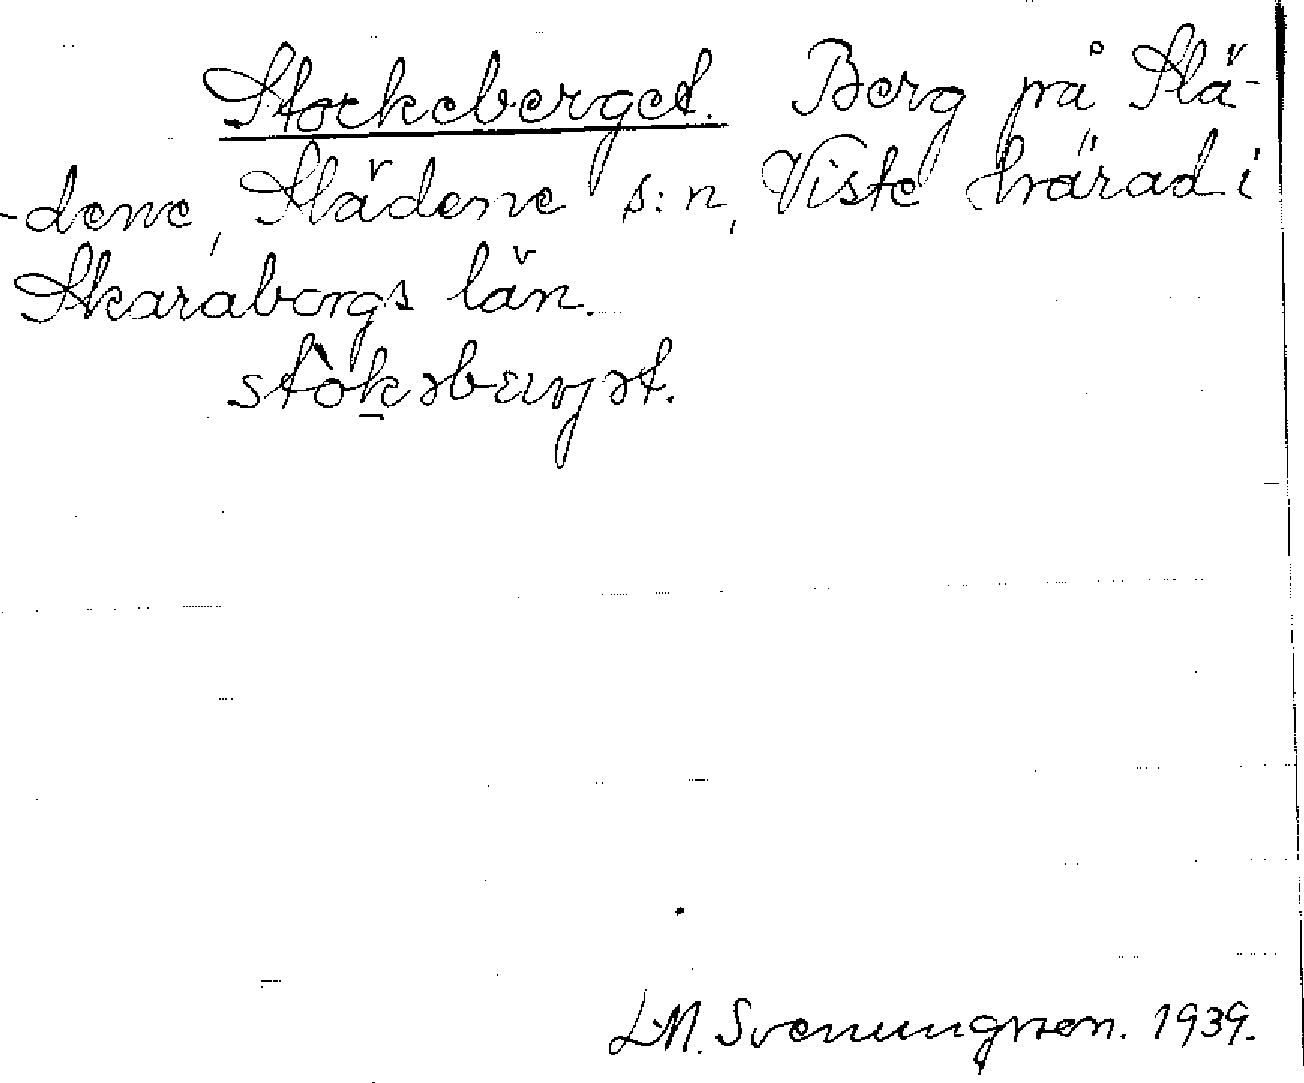 Stockeberget. Berg på Slä-
-dene, Slädene s:n, Viste härad i
Skaraborgs län.
L.M. Svenungsson. 1939.